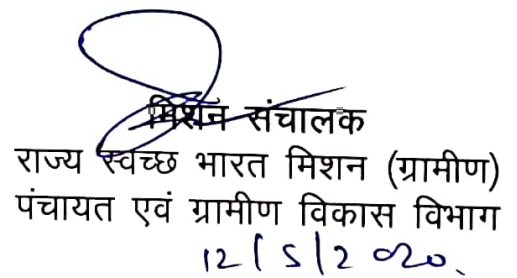 मिशन संचालक
राज्य स्वच्छ भारत मिशन (ग्रामीण)
पंचायत एवं ग्रामीण विकास विभाग
12/5/2020